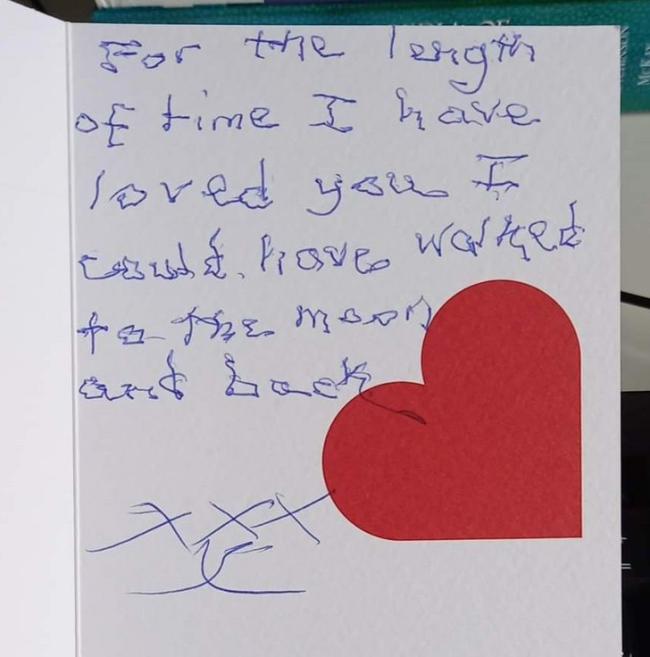 For the length
of time I have
loved you I
could have walked
to the moon
and back
xxx